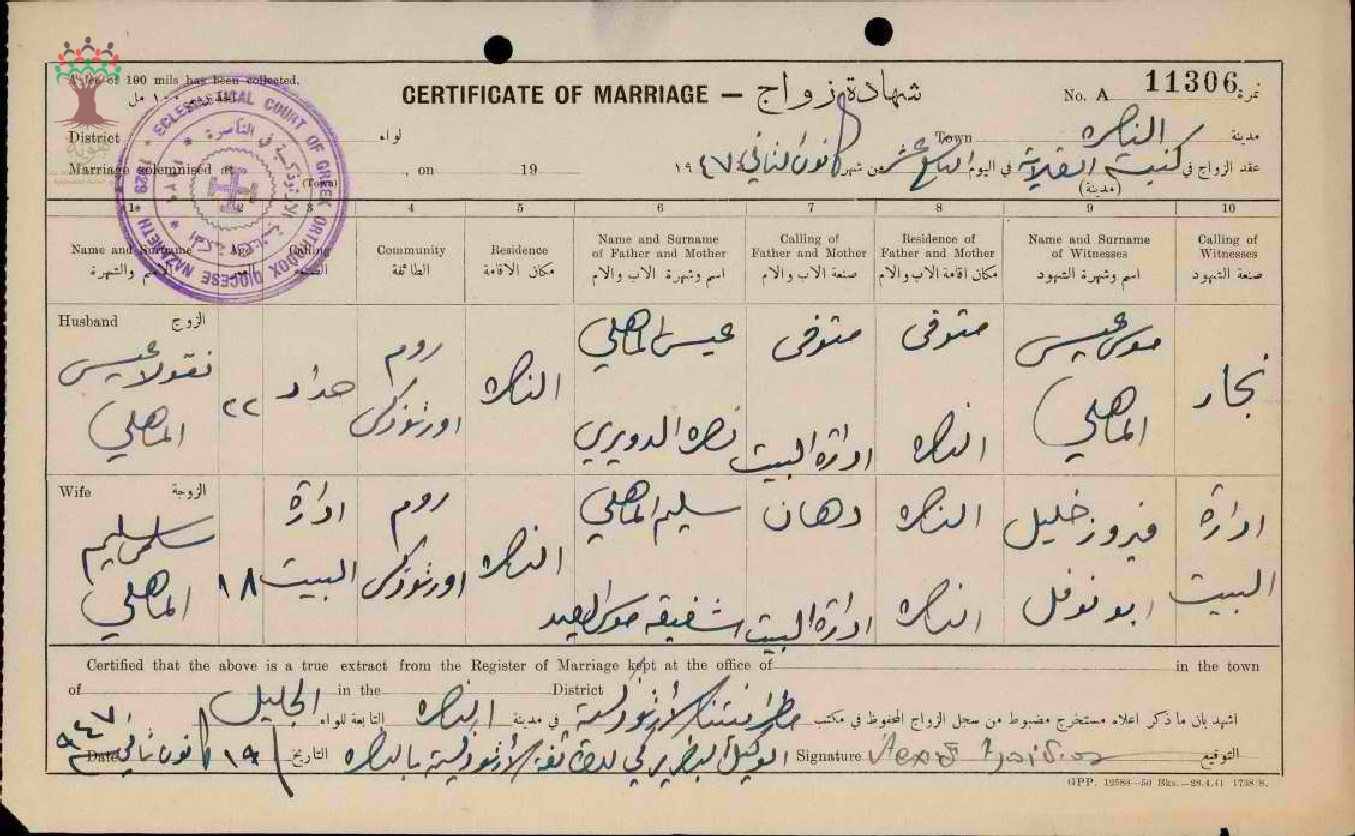 A fee of 100 mils has been collected.
CERTIFICATE OF MARRIAGE — شهادة زواج
No. A 11306 نمرة
District لواء Town الناصره مدينة
Marriage solemnised at (Town) , on 19
عقد الزواج في كنيسة في اليوم التاسع عشر من شهر كانون الثاني ١٩٤٧
(مدينة)
1 2 3 4 5 6 7 8 9 10
Name and Surname الاسم والشهرة
Age
Calling
Community الطائفة
Residence مكان الاقامة
Name and Surname of Father and Mother اسم وشهرة الاب والام
Calling of Father and Mother صنعة الاب والام
Residence of Father and Mother مكان اقامة الاب والام
Name and Surname of Witnesses اسم وشهرة الشهود
Calling of Witnesses صنعة الشهود
Husband الزوج
نقولا عيسى
الماهلي
٢٢
حداد
روم
اورثوذكس
الناصره
عيسى الماهلي
نصره الدويري
متوفى
ادارة البيت
متوفى
الناصره
موسى عيسى
الماهلي
نجار
Wife الزوجة
سلمى سليم
الماهلي
١٨
ادارة
البيت
روم
اورثوذكس
الناصره
سليم الماهلي
شفيقه موسى
دهان
ادارة البيت
الناصره
الناصره
فيروز خليل
ابو نوفل
ادارة
البيت
Certified that the above is a true extract from the Register of Marriage kept at the office of in the town
of in the District
اشهد بان ما ذكر اعلاه مستخرج مضبوط من سجل الزواج المحفوظ في مكتب الارثوذكسية في مدينة الناصره التابعة للواء الجليل
Date ١٩ كانون ثاني ٩٤٧ التاريخ
الوكيل البطريركي الارثوذكسية بالناصره
Signature التوقيع
GPP. 12588—50 Bks.—28.4.41 1738/S.
ECCLESIASTICAL COURT OF GREEK ORTHODOX DIOCESE NAZARETH